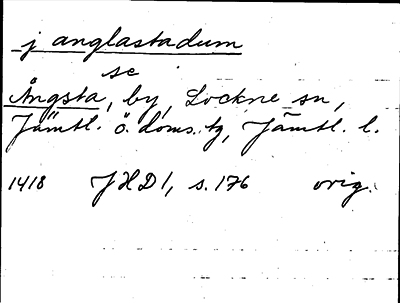 j anglastadum
se
Ångsta, by, Lockne sn,
Jämtl. ö. doms. tg, Jämtl. l.
1418 JHD 1, s. 176 orig.